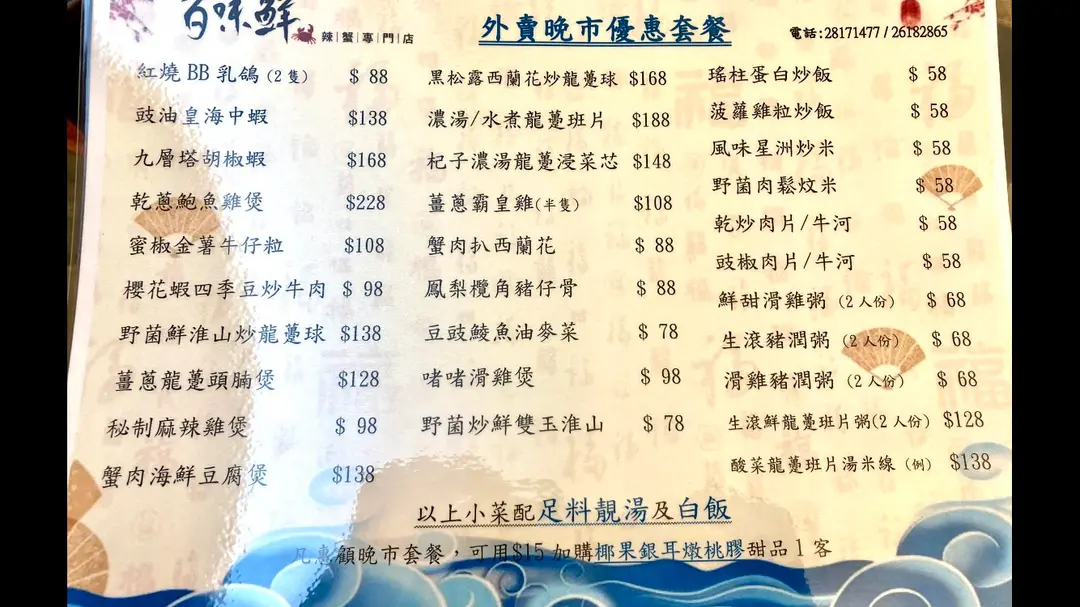 百味鮮
辣|蟹|專|門|店
外賣晚市優惠套餐
電話:28171477 / 26182865
紅燒 BB 乳鴿 (2 隻) $ 88
豉油皇海中蝦 $138
九層塔胡椒蝦 $168
乾蔥鮑魚雞煲 $228
蜜椒金薯牛仔粒 $108
櫻花蝦四季豆炒牛肉 $ 98
野菌鮮淮山炒龍躉球 $138
薑蔥龍躉頭腩煲 $128
秘制麻辣雞煲 $ 98
蟹肉海鮮豆腐煲 $138
黑松露西蘭花炒龍躉球 $168
濃湯/水煮龍躉班片 $188
杞子濃湯龍躉浸菜芯 $148
薑蔥霸皇雞(半隻) $108
蟹肉扒西蘭花 $ 88
鳳梨欖角豬仔骨 $ 88
豆豉鯪魚油麥菜 $ 78
啫啫滑雞煲 $ 98
野菌炒鮮雙玉淮山 $ 78
瑤柱蛋白炒飯 $ 58
菠蘿雞粒炒飯 $ 58
風味星洲炒米 $ 58
野菌肉鬆炆米 $ 58
乾炒肉片/牛河 $ 58
豉椒肉片/牛河 $ 58
鮮甜滑雞粥 (2 人份) $ 68
生滾豬潤粥 (2 人份) $ 68
滑雞豬潤粥 (2 人份) $ 68
生滾鮮龍躉班片粥(2 人份) $128
酸菜龍躉班片湯米線 (例) $138
以上小菜配足料靚湯及白飯
凡惠顧晚市套餐，可用$15 加購椰果銀耳燉桃膠甜品 1 客